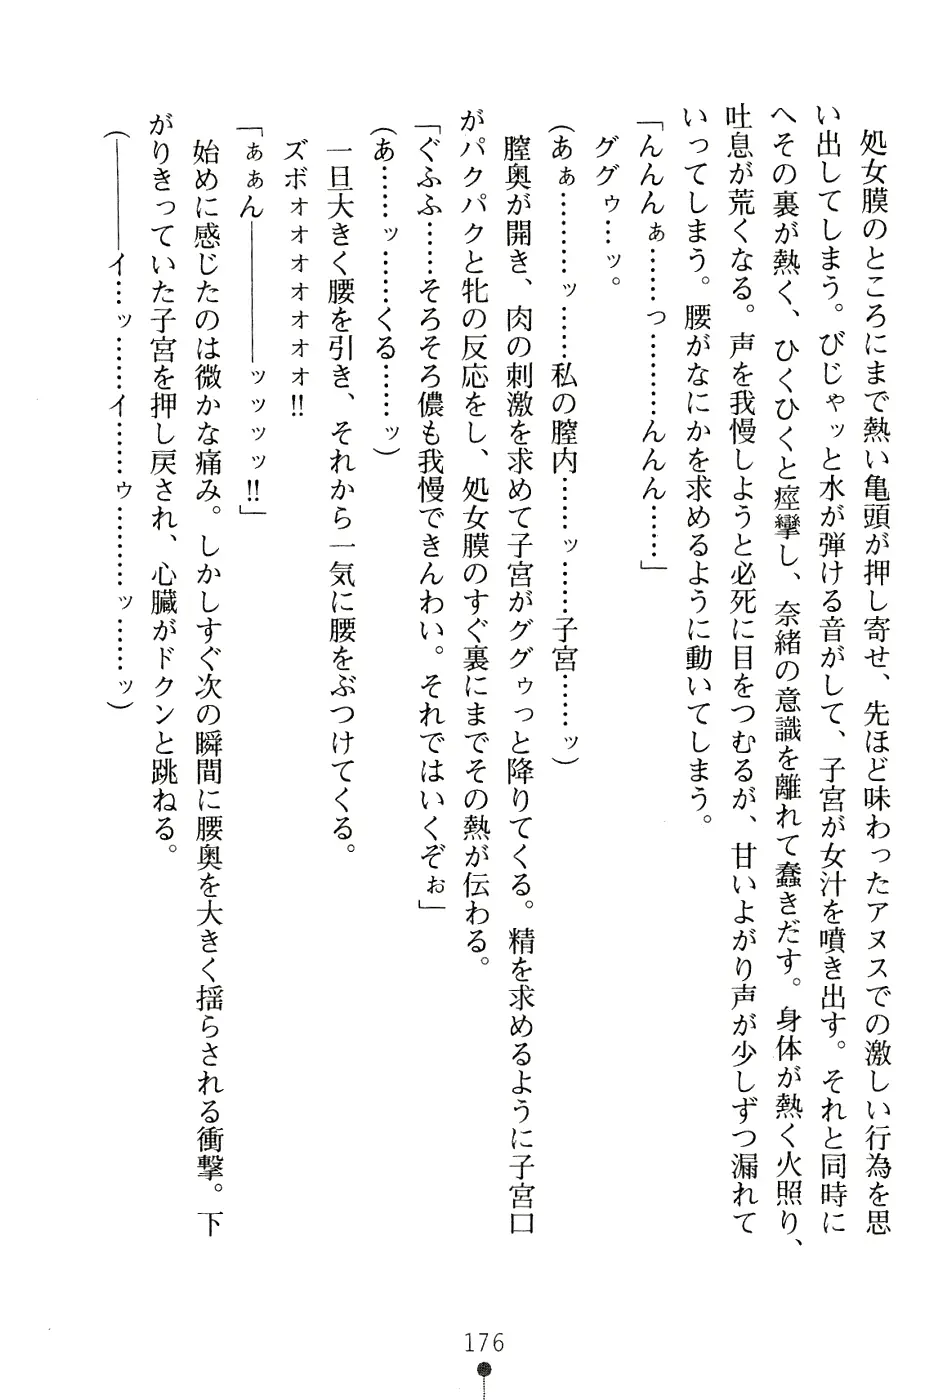 処女膜のところにまで熱い亀頭が押し寄せ、先ほど味わったアヌスでの激しい行為を思
い出してしまう。びじゃッと水が弾ける音がして、子宮が女汁を噴き出す。それと同時に
へその裏が熱く、ひくひくと痙攣し、奈緒の意識を離れて蠢きだす。身体が熱く火照り、
吐息が荒くなる。声を我慢しようと必死に目をつむるが、甘いよがり声が少しずつ漏れて
いってしまう。腰がなにかを求めるように動いてしまう。
「んんんぁ……っ………んんん……」
ググゥ…ッ。
(あぁ………ッ……私の膣内……ッ……子宮……ッ)
膣奥が開き、肉の刺激を求めて子宮がググゥっと降りてくる。精を求めるように子宮口
がパクパクと牝の反応をし、処女膜のすぐ裏にまでその熱が伝わる。
「ぐふふ……そろそろ儂も我慢できんわい。それではいくぞぉ」
(あ……ッ………くる……ッ)
一旦大きく腰を引き、それから一気に腰をぶつけてくる。
ズボォォォォォォ!!
「ぁぁん――――ッッッッ!!」
始めに感じたのは微かな痛み。しかしすぐ次の瞬間に腰奥を大きく揺らされる衝撃。下
がりきっていた子宮を押し戻され、心臓がドクンと跳ねる。
(――――イ…ッ………イ……ゥ………ッ……ッ)
176